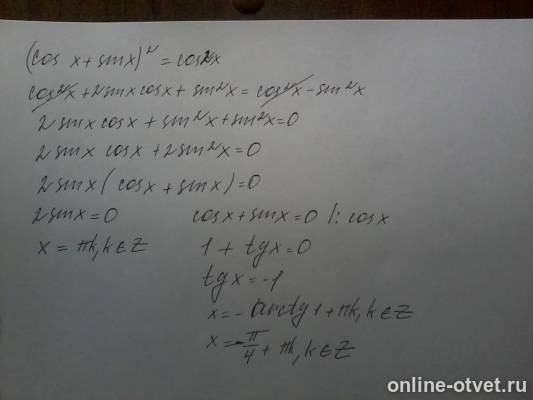 (cos x + sin x)² = cos2x
cos²x + 2sinx cosx + sin²x = cos²x - sin²x
2sinx cosx + sin²x + sin²x = 0
2sinx cosx + 2sin²x = 0
2sinx (cosx + sinx) = 0
2sinx = 0 cosx + sinx = 0 |: cosx
x = πk, k ∈ Z 1 + tgx = 0
tgx = -1
x = - arctg1 + πk, k ∈ Z
x = -π/4 + πk, k ∈ Z
online-otvet.ru